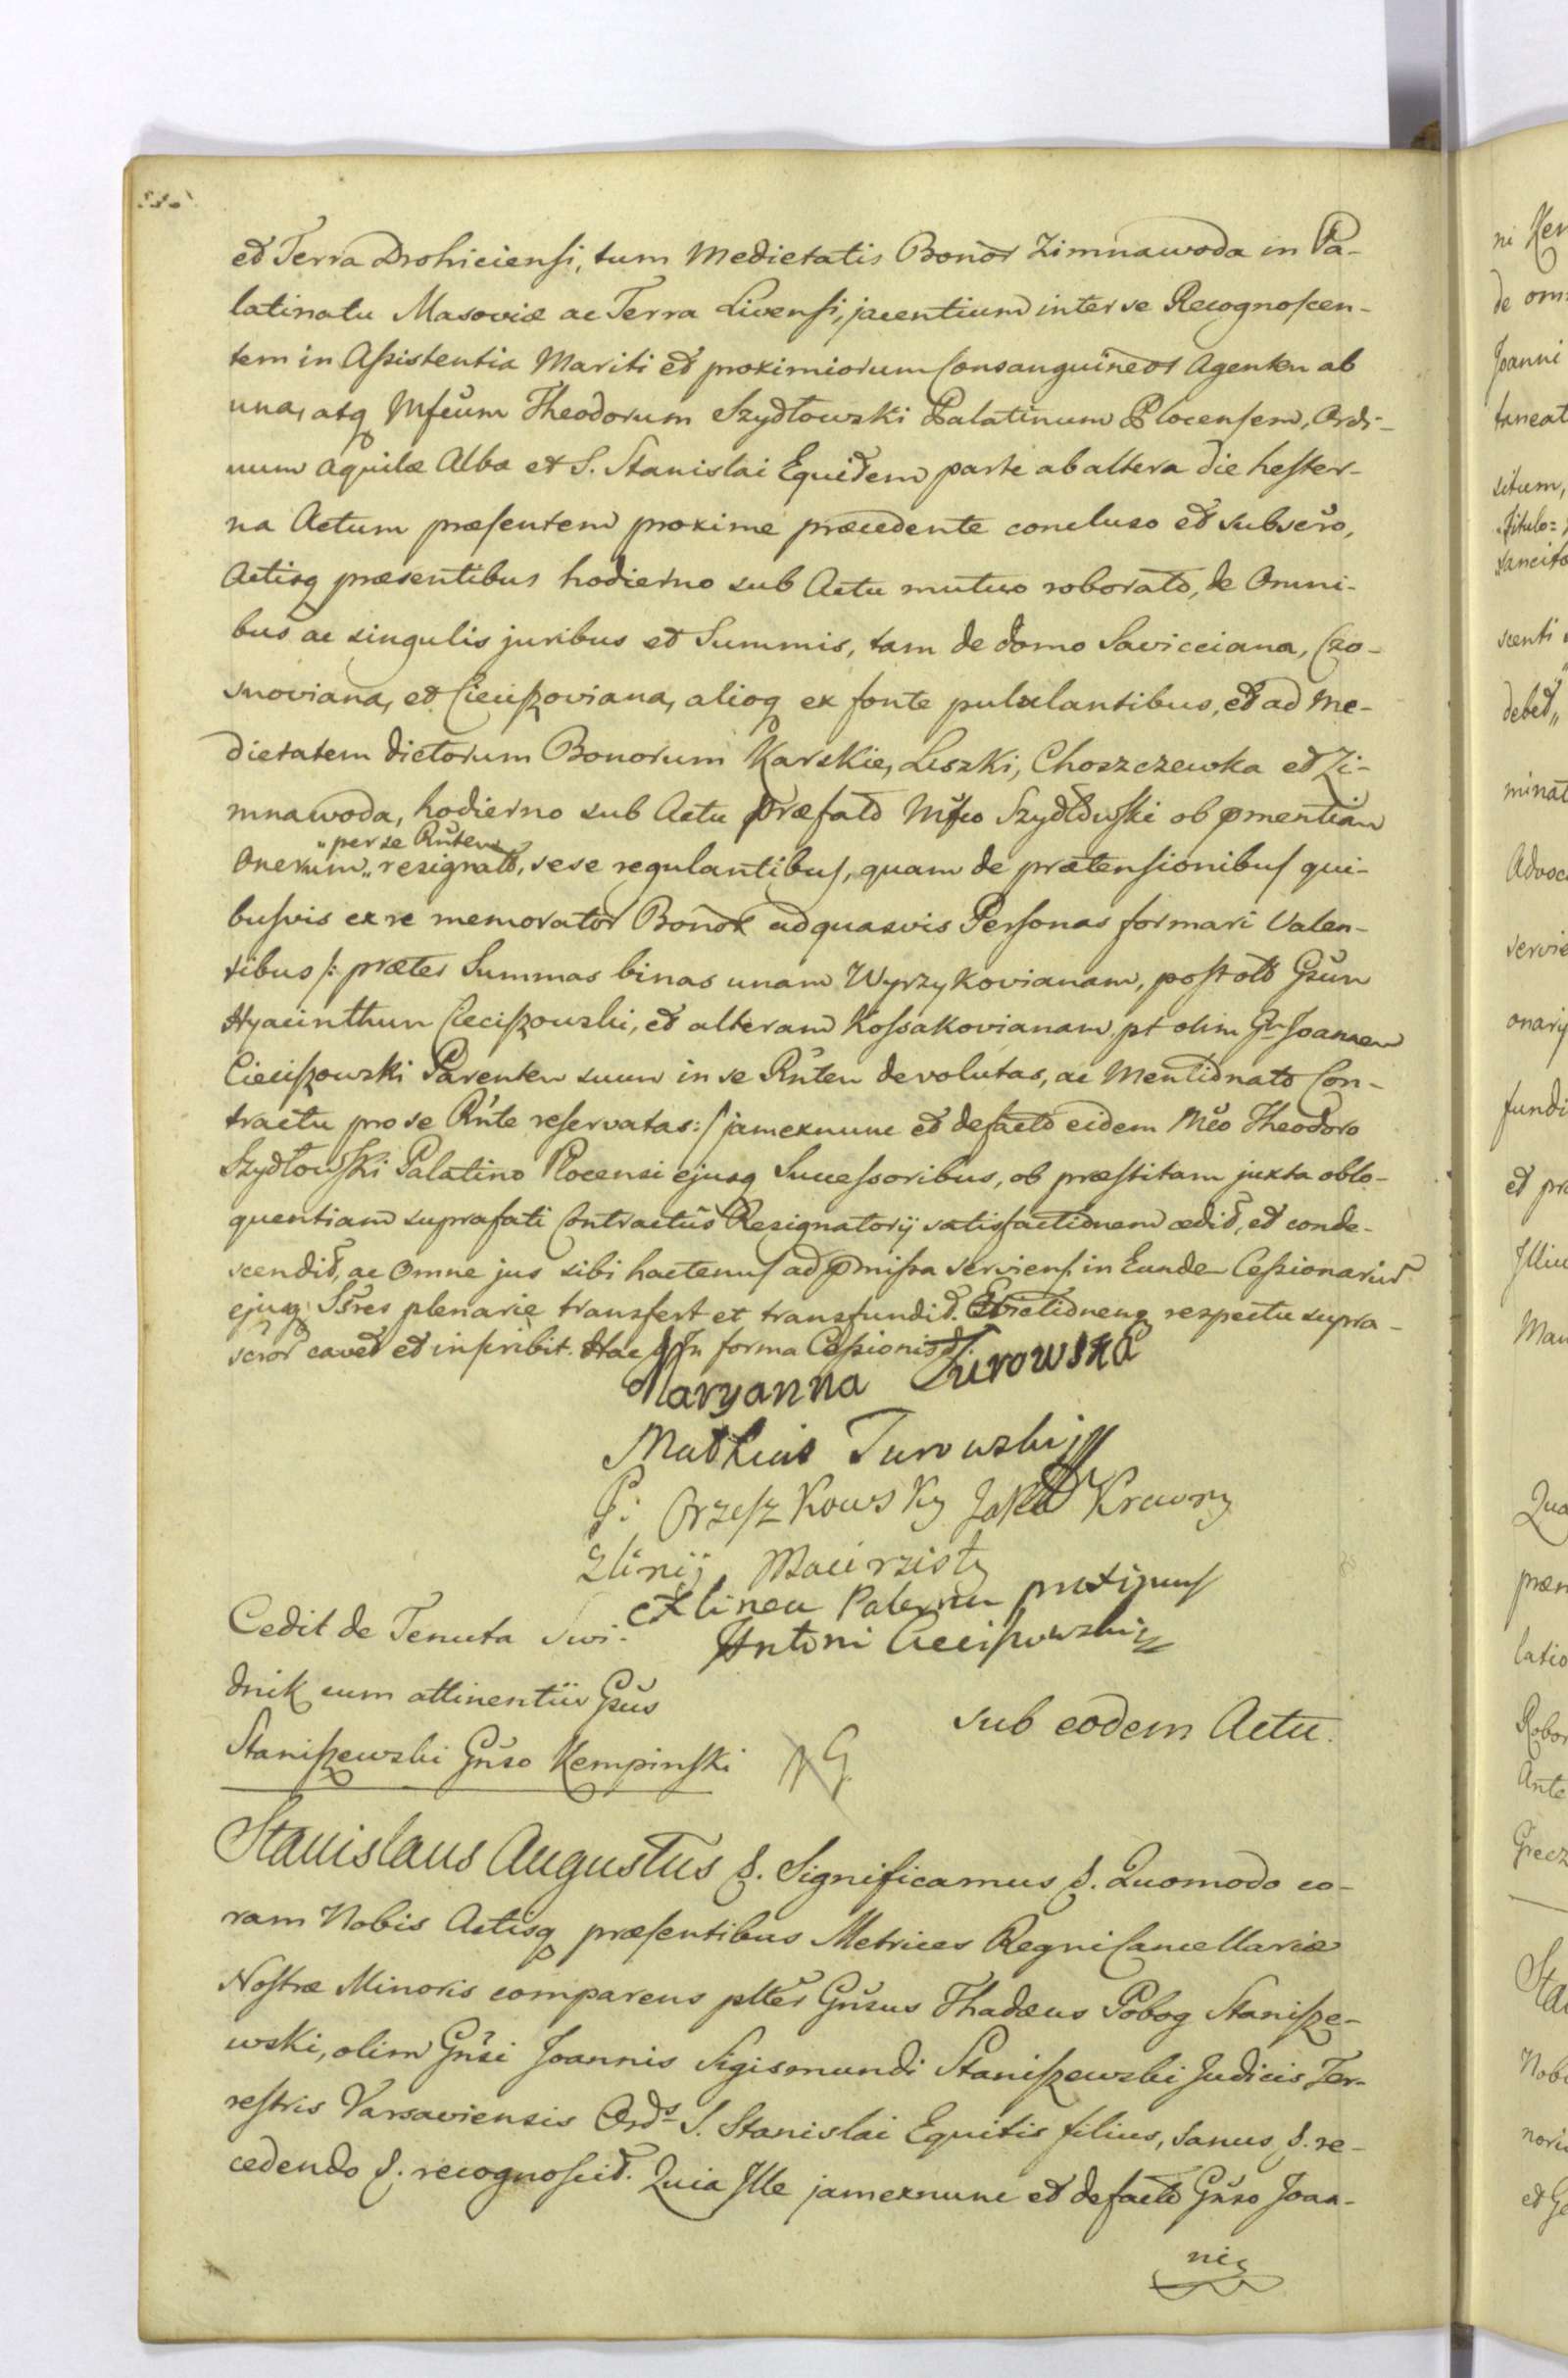 et Terra Drohiciensi, tum Medietatis Bonor Zimnawoda in Pa-
latinatu Masoviæ ac Terra Livensi, jacentium inter se Recognoscen-
tem in Assistentia Mariti et proximiorum Consanguineor Agentem ab
una, atq Mfcum Theodorum Szydłowski Palatinum Plocensem, Ordi-
num Aquilæ Albæ et S. Stanislai Equitem parte ab altera die hester-
na Actum præsentem proxime præcedente concluso et subscro,
Actisq præsentibus hodierno sub Actu mutuo roborato, de Omni-
bus ac singulis juribus et Summis, tam de domo Savicciana, Czo-
snoviana, et Cieciszoviana, alioq ex fonte pululantibus, et ad Me-
dietatem dictorum Bonorum Karskie, Leszki, Choszczewka et Zi-
mnawoda, hodierno sub Actu Præfato Mfco Szydłowski ob pmentiam
"per se Rntem
Onerum" resignato, sese regulantibus, quam de prætensionibus qui-
busvis ex re memorator Bonor ad quasvis Personas formari Valen-
tibus /: præter Summas binas unam Wyrzykovianam, post olim Gsum
Hyacinthum Cieciszowski, et alteram Kossakovianam pt olim G. Joannem
Cieciszowski Parentem suum in se Rntem devolutas, ac Mentionato Con-
tractu pro se Rnte reservatas :/ jamexnunc et defacto eidem Mco Theodoro
Szydłowski Palatino Plocensi ejusq Successoribus, ob præstitam juxta oblo-
quentiam suprafati Contractus Resignatorij satisfactionem cedit, et conde-
scendit, ac Omne jus sibi hactenus ad pmissa serviens in Eundem Cessionarium
ejusq Ssres plenarie transfert et transfundit. Evictionenq respectu supra-
scror cavet et inscribit. Hac In forma Cessionis
Maryanna Turowska
Mathias Turowski
P: Orzeszkowsky Jako Krewny
Zlinij Macirzisty
ex linea Paterna proximus
Antoni Cieciszowski
Cedit de Tenuta Swi-
dnik cum attinentiis Gsus
Staniszewski Gnso Kempinski
NG
Sub eodem Actu.
Stanislaus Augustus &. Significamus &. Quomodo co-
ram Nobis Actisq præsentibus Metrices Regni Cancellariæ
Nostræ Minoris comparens plter Gnsus Thadæus Pobog Stanisze-
wski, olim Gnsi Joannis Sigismundi Staniszewski Judicis Ter-
restris Varsaviensis Ords S. Stanislai Equitis filius, sanus &. re-
cedendo &. recognoscit. Quia Ille jamexnunc et defacto Gnso Joan-
ni